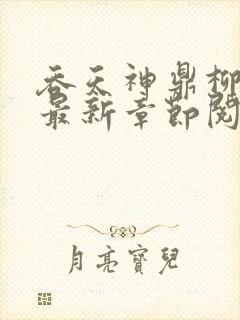 吞天神鼎柳
最新章節閱
月亮寶兒